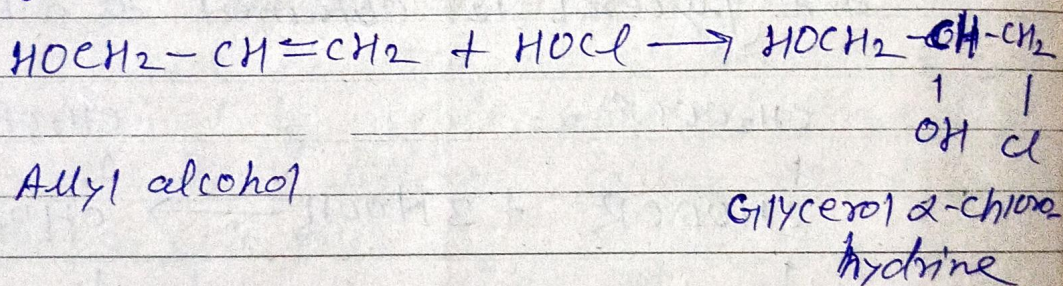 HOCH2 – CH = CH2 + HOCl → HOCH2 – CH – CH2
OH Cl
Allyl alcohol
Glycerol α-chloro
hydrine